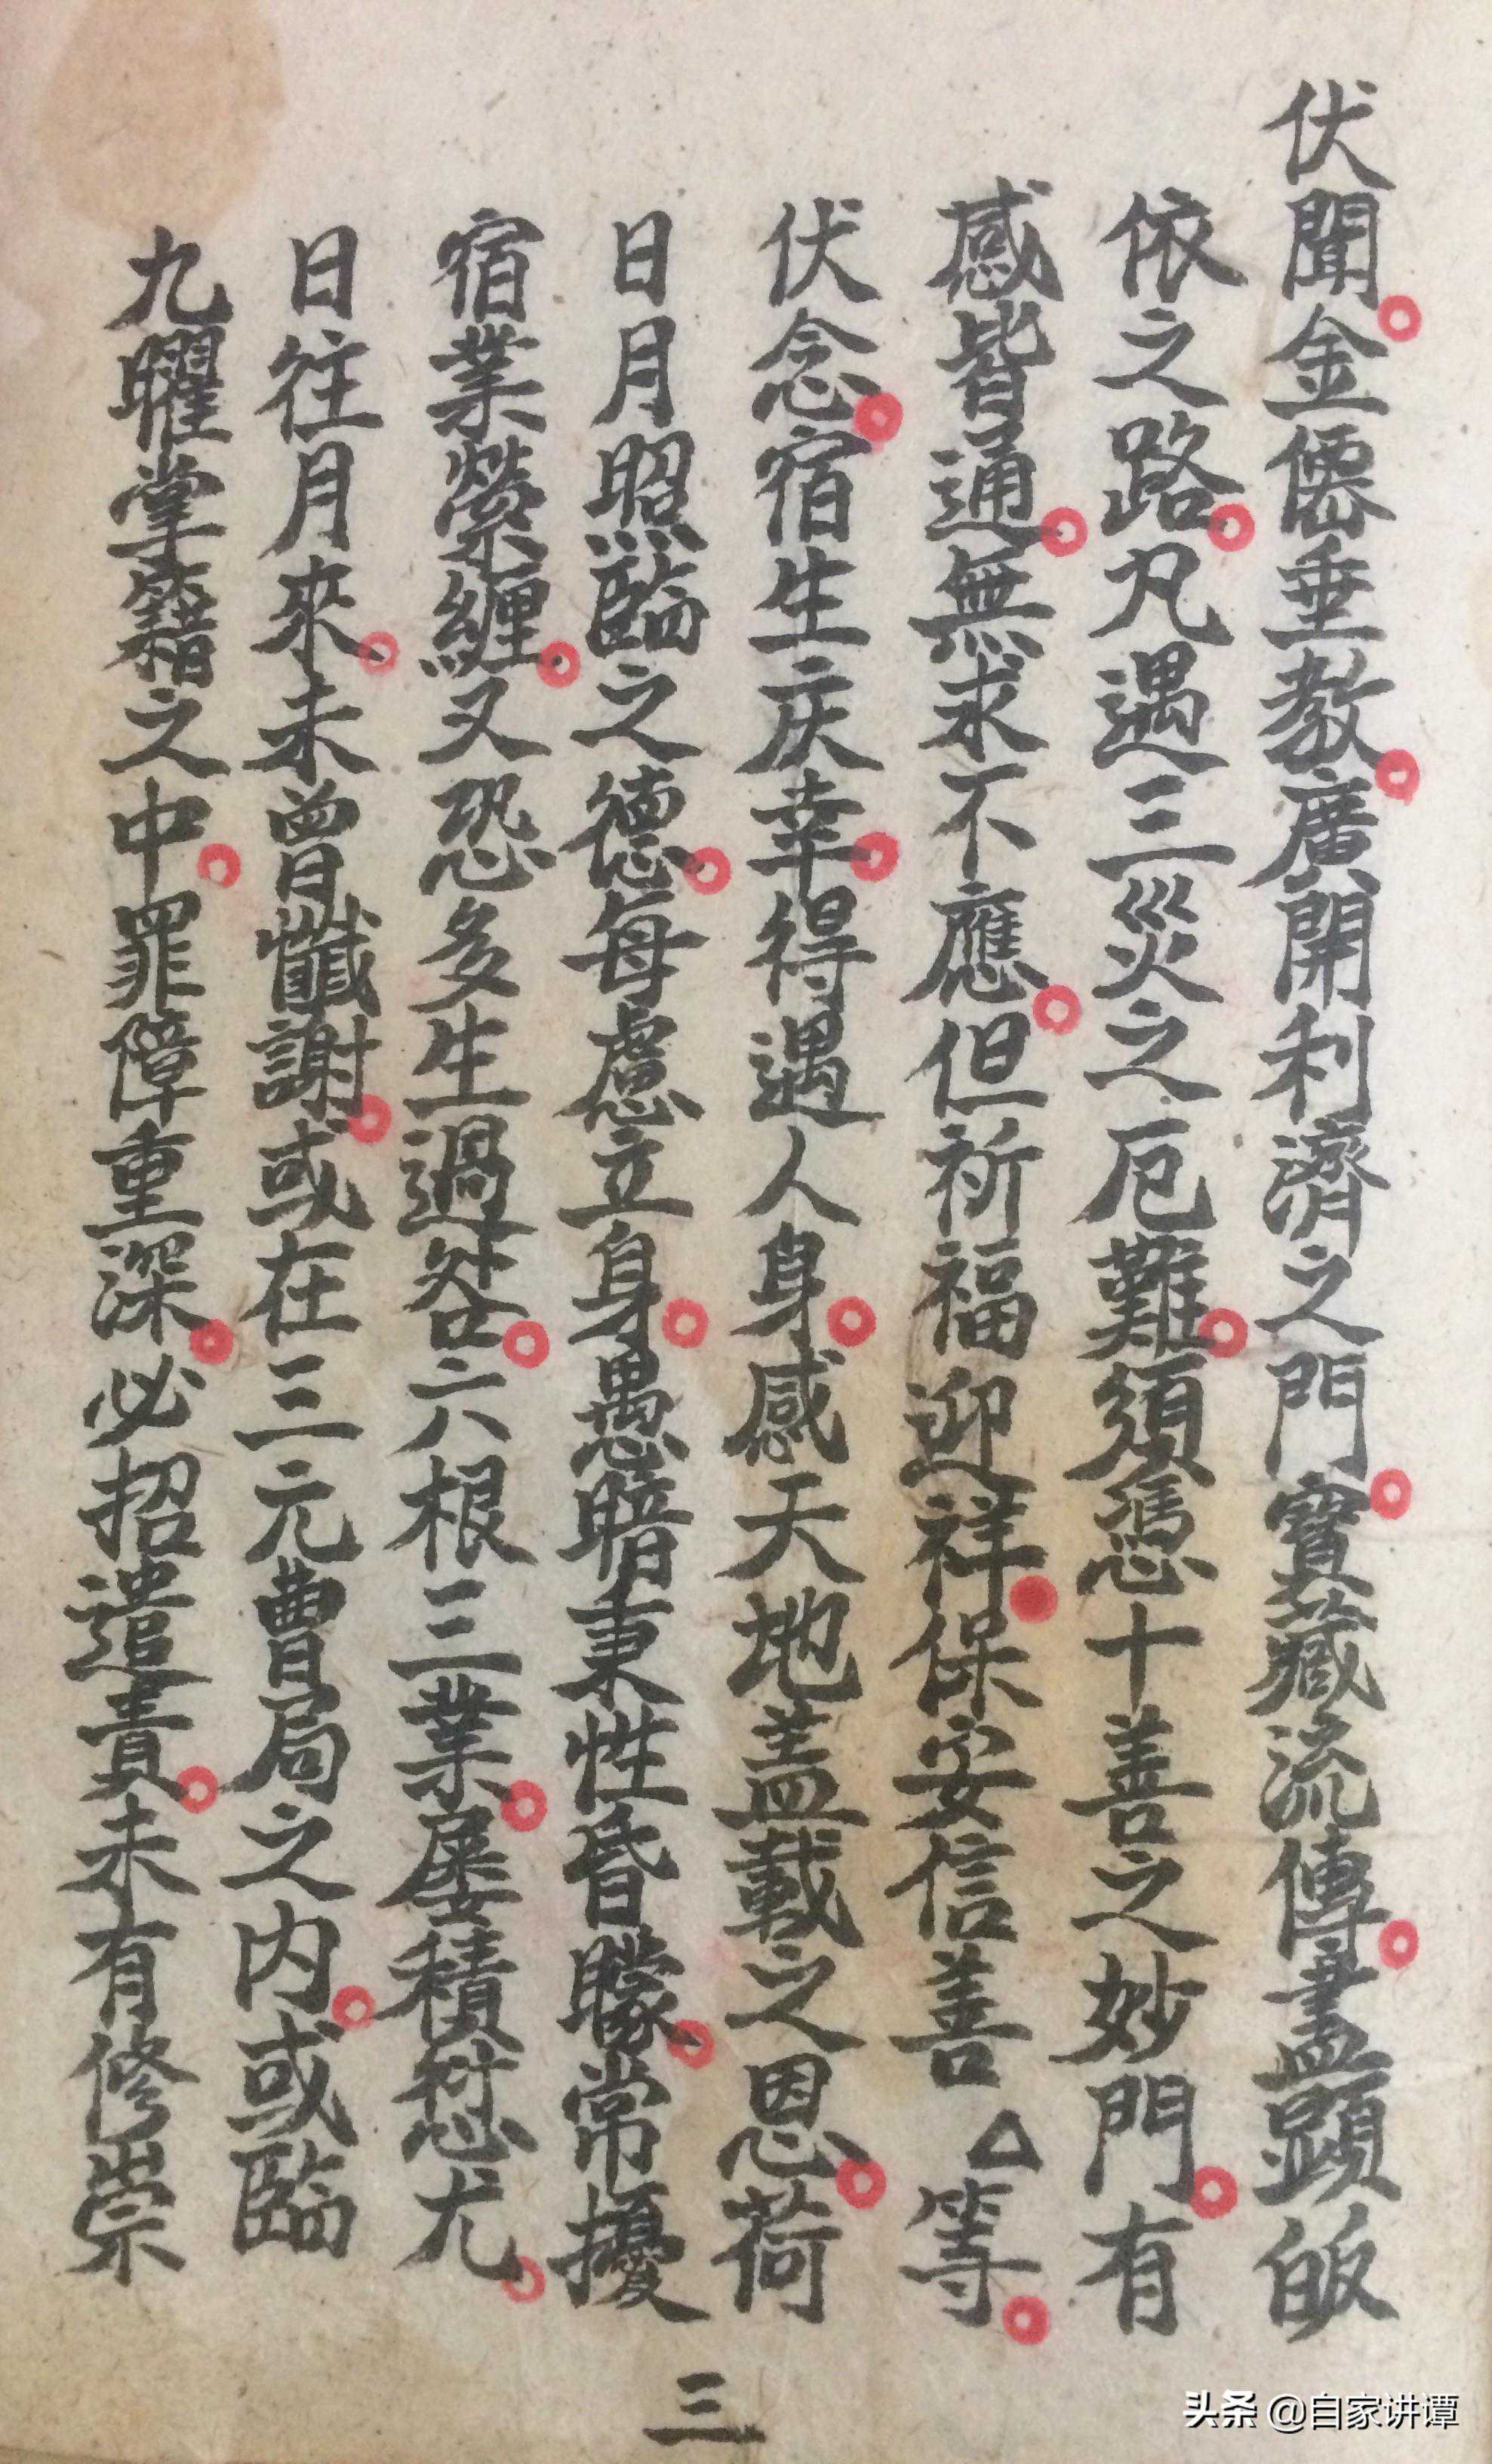 伏聞金僊垂教廣開利濟之門寶藏流傳盡顕皈
依之路凡遇三災之厄難須憑十善之妙門有
感皆通無求不應但祈福迎祥保安信善△等
伏念宿生庆幸得遇人身感天地盖載之恩荷
日月照臨之德每慮立身愚暗秉性昏矇常擾
宿業縈纏又恐多生過咎六根三業屡積愆尤
日往月來未曾懺謝或在三元曹局之内或臨
九曜掌籍之中罪障重深必招遣責未有修崇
三
头条 @自家讲谭